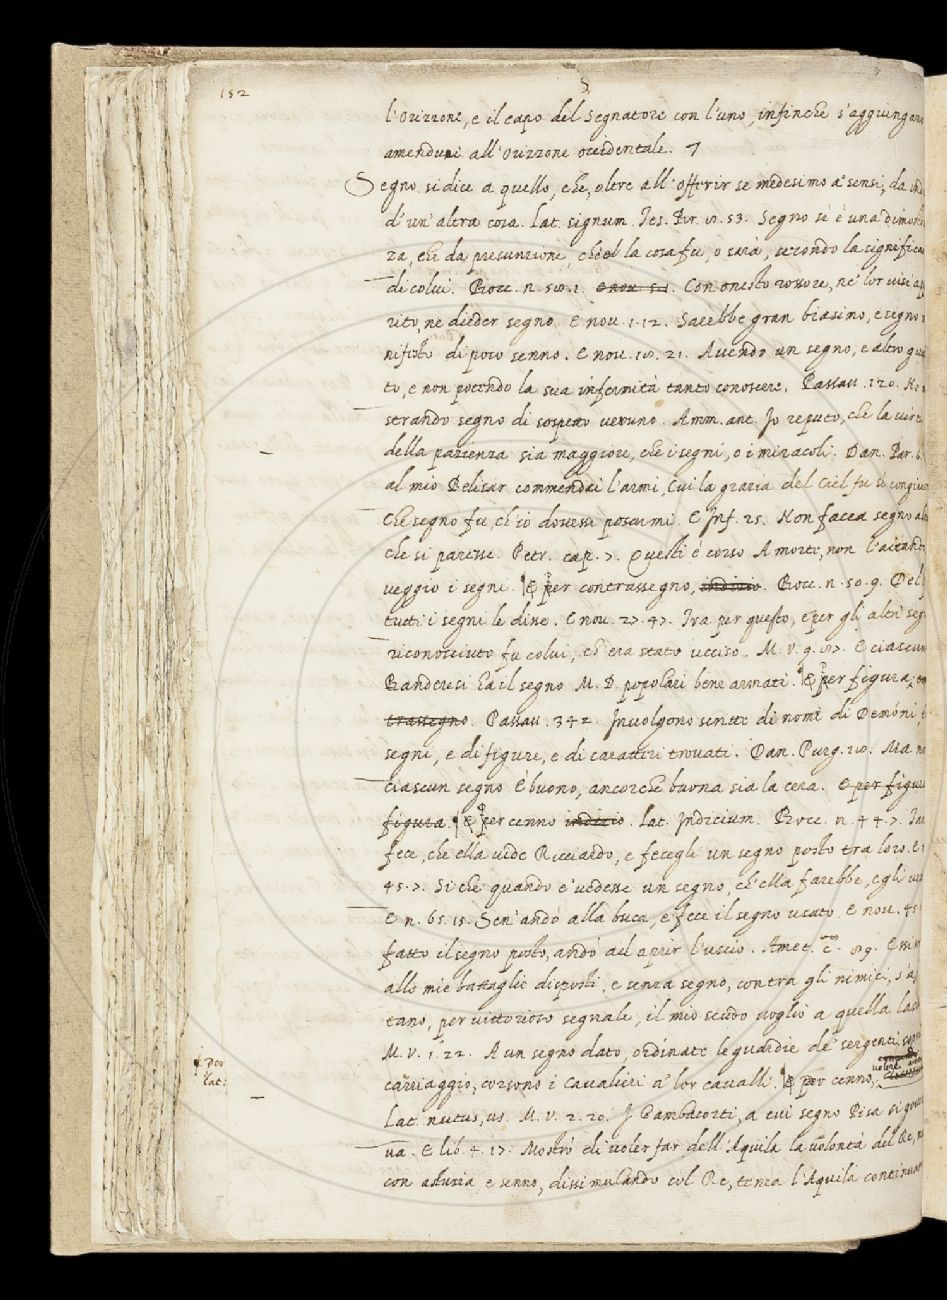 152
S
l'Orizzone, e il capo del Segnatore con l'uno, infinche s'aggiungano
amenduni all'Orizzone occidentale.
Segno. si dice a quello, che, oltre all'offerir se medesimo a' sensi, da
d'un'altra cosa. Lat. signum. Tes. Br. 53. Segno si è una
za, che da presunzione, che la cosa fu, o sarà, secondo la
di colui. Bocc. n. 1. Con onesto rossore, ne' lor visi
rito, ne dieder segno. E nov. 1. 12. Sarebbe gran biasimo, e segno
nifesto di poco senno. E nov. 21. Avendo un segno, e altro
to, e non potendo la sua infermità tanto conoscere. Passav. 120.
strando segno di sospetto veruno. Amm. ant. Io reputo, che la
della pazienza sia maggiore, che i segni, o i miracoli. Dan. Par. 6.
al mio Belisar commendai l'armi, Cui la grazia del Ciel fu sì
Che segno fu, ch'io dovessi posarmi. E Inf. 25. Non facea segno
che si paresse. Petr. cap. 7. Quelli è corso A morte, non l'aitando
veggio i segni. E per contrassegno, indizio. Bocc. n. 50. 9.
tutti i segni le disse. E nov. 27. 47. Tra per questo, e per gli altri
riconosciuto fu colui, ch'era stato ucciso. M. V. 9. E ciascun
Banderesi ha il segno M. D. popolari bene armati. E per figura
trassegno. Passav. 342. Involgono scritte di nomi di Demóni
segni, e di figure, e di caratteri trovati. Dan. Purg. Ma
ciascun segno È buono, ancorchè buona sia la cera. E per
figura. E per cenno indizio. Lat. Indicium. Bocc. n. 44. 7.
fece, che ella vide Ricciardo, e fecegli un segno posto tra loro. E
45. 7. Si che quando e' vedesse un segno, ch'ella farebbe, egli
E n. 65. 15. Sen'andò alla buca, e fece il segno usato. E nov. 45
fatto il segno posto, andò ad aprir l'uscio. Amet. 89.
alle mie battaglie disposti, e senza segno, contra gli nimici,
tano, per vittorioso segnale, il mio scudo voglio a quella
M. V. 1. 22. A un segno dato, ordinate le guardie de' sergenti,
carriaggio, corsono i Cavalieri a' lor cavalli. E per cenno,
volere
Lat. nutus, us. M. V. 2. 20. I Gambacorti, a cui segno Pisa si
va. E lib. 4. 17. Mostrò di voler far dell'Aquila la volontà del Re,
con astuzia, e senno, dissimulando col Re, tenea l'Aquila
Per
Lat: